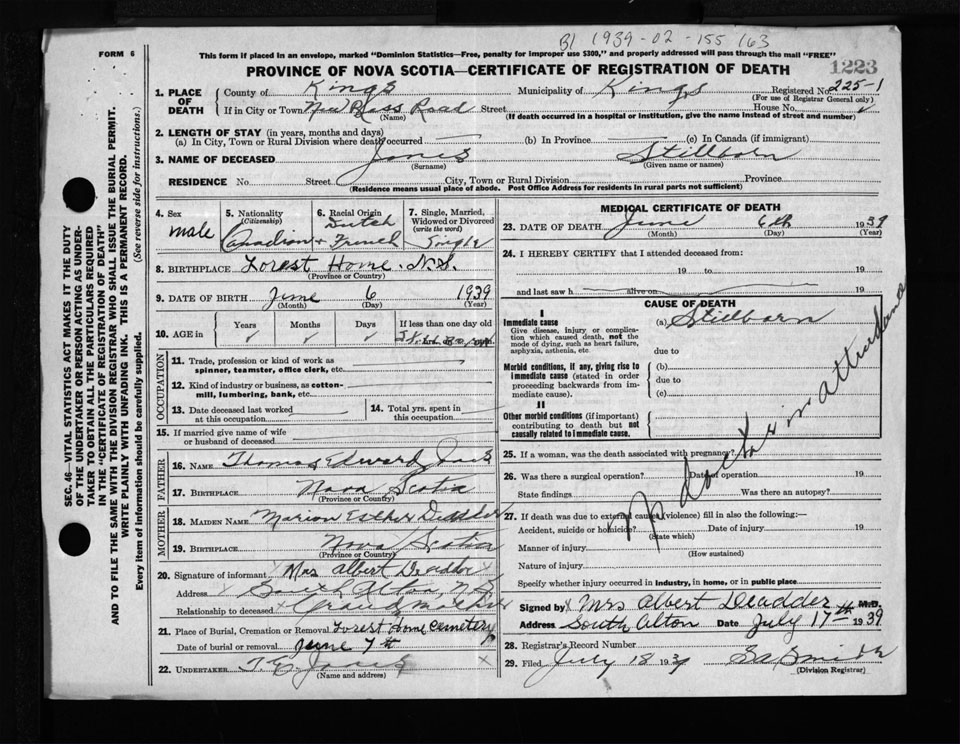 B1 1939-02-155 163
FORM 6
This form if placed in an envelope, marked "Dominion Statistics—Free, penalty for improper use $300," and properly addressed will pass through the mail "FREE"
1223
PROVINCE OF NOVA SCOTIA—CERTIFICATE OF REGISTRATION OF DEATH
1. PLACE OF DEATH
County of Kings Municipality of Kings Registered No. 225-1
(For use of Registrar General only)
If in City or Town New Ross Road Street House No.
(Name) (If death occurred in a hospital or institution, give the name instead of street and number)
2. LENGTH OF STAY (in years, months and days)
(a) In City, Town or Rural Division where death occurred (b) In Province (c) In Canada (if immigrant)
3. NAME OF DECEASED Stillborn
(Surname) (Given name or names)
RESIDENCE No. Street City, Town or Rural Division Province
(Residence means usual place of abode. Post Office Address for residents in rural parts not sufficient)
4. Sex male
5. Nationality (Citizenship) Canadian
6. Racial Origin Dutch + French
7. Single, Married, Widowed or Divorced (write the word) Single
8. BIRTHPLACE Forest Home N.S.
(Province or Country)
9. DATE OF BIRTH June 6 1939
(Month) (Day) (Year)
10. AGE in Years Months Days If less than one day old
OCCUPATION
11. Trade, profession or kind of work as spinner, teamster, office clerk, etc.
12. Kind of industry or business, as cotton-mill, lumbering, bank, etc.
13. Date deceased last worked at this occupation
14. Total yrs. spent in this occupation
15. If married give name of wife or husband of deceased
FATHER
16. NAME Thomas Edward
17. BIRTHPLACE Nova Scotia
(Province or Country)
MOTHER
18. MAIDEN NAME Marion Esther Deadder
19. BIRTHPLACE Nova Scotia
(Province or Country)
20. Signature of informant Mrs Albert Deadder
Address South Alton, N.S.
Relationship to deceased Grandmother
21. Place of Burial, Cremation or Removal Forest Home Cemetery
Date of burial or removal June 7th
22. UNDERTAKER
(Name and address)
MEDICAL CERTIFICATE OF DEATH
23. DATE OF DEATH June 6th 1939
(Month) (Day) (Year)
24. I HEREBY CERTIFY that I attended deceased from:
19 to 19
and last saw h alive on 19
CAUSE OF DEATH
I
Immediate cause (a) Stillborn
Give disease, injury or complication which caused death, not the mode of dying, such as heart failure, asphyxia, asthenia, etc.
due to
Morbid conditions, if any, giving rise to immediate cause (stated in order proceeding backwards from immediate cause).
(b)
due to
(c)
II
Other morbid conditions (if important) contributing to death but not causally related to immediate cause.
No doctor in attendance
25. If a woman, was the death associated with pregnancy?
26. Was there a surgical operation? Date of operation 19
State findings Was there an autopsy?
27. If death was due to external causes (violence) fill in also the following:—
Accident, suicide or homicide? Date of injury 19
(State which)
Manner of injury
(How sustained)
Nature of injury
Specify whether injury occurred in industry, in home, or in public place
Signed by Mrs Albert Deadder M.D.
Address South Alton Date July 17th 1939
28. Registrar's Record Number
29. Filed July 18 1939
(Division Registrar)
SEC. 46—VITAL STATISTICS ACT MAKES IT THE DUTY
OF THE UNDERTAKER OR PERSON ACTING AS UNDER-
TAKER TO OBTAIN ALL THE PARTICULARS REQUIRED
IN THE "CERTIFICATE OF REGISTRATION OF DEATH"
AND TO FILE THE SAME WITH THE DIVISION REGISTRAR WHO SHALL ISSUE THE BURIAL PERMIT.
WRITE PLAINLY WITH UNFADING INK. THIS IS A PERMANENT RECORD.
Every item of information should be carefully supplied. (See reverse side for instructions.)